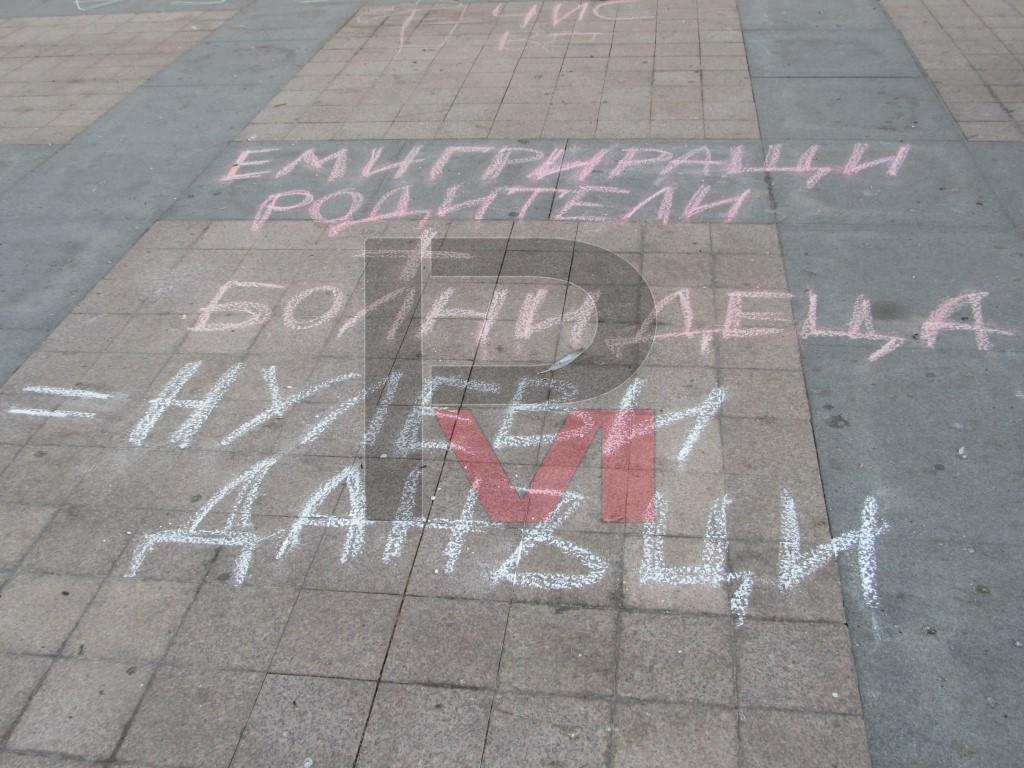 ЧИС
ЕМИГРИРАЩИ
РОДИТЕЛИ
+
БОЛНИ ДЕЦА
= НУЛЕВИ
ДАНЪЦИ
PVI